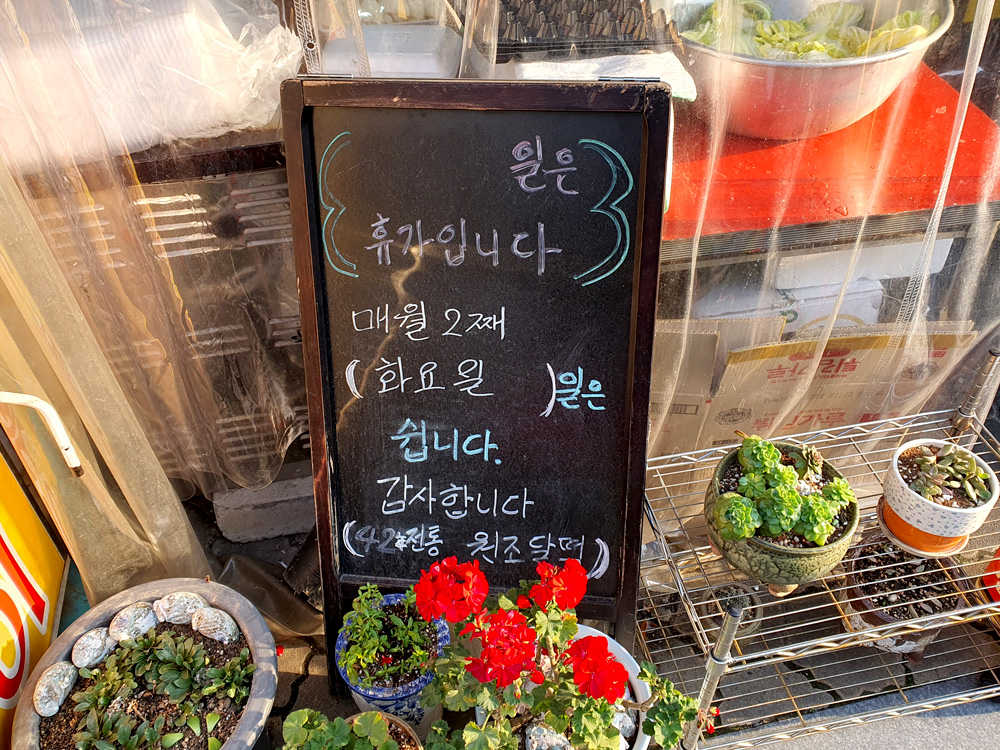 일은
휴가입니다
매월 2째
(화요일 )일은
쉽니다.
감사합니다
(42년전통 원조닭떡)
밀가루